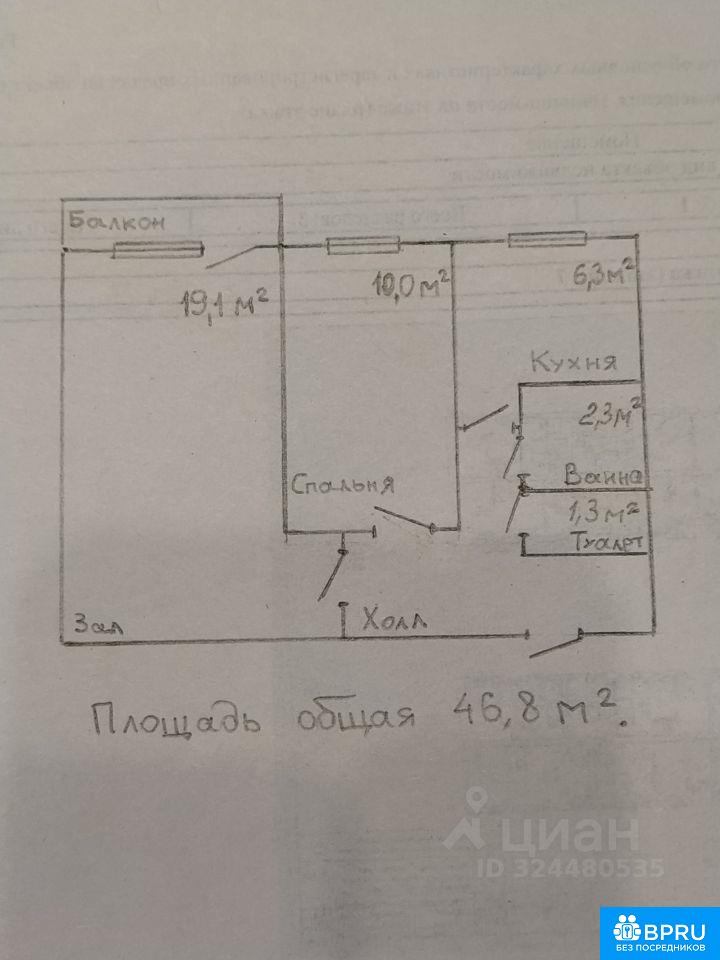 Балкон
19,1 м²
10,0 м²
6,3 м²
Кухня
2,3 м²
Ванна
Спальня
1,3 м²
Туалет
Зал
Холл
Площадь общая 46,8 м².
циан
ID 324480535
BPRU
БЕЗ ПОСРЕДНИКОВ